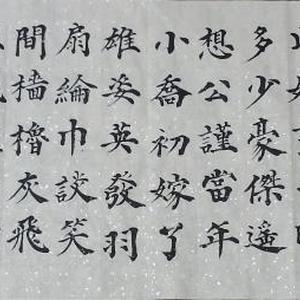 多少豪傑遙
想公謹當年
小喬初嫁了
雄姿英發羽
扇綸巾談笑
間檣櫓灰飛